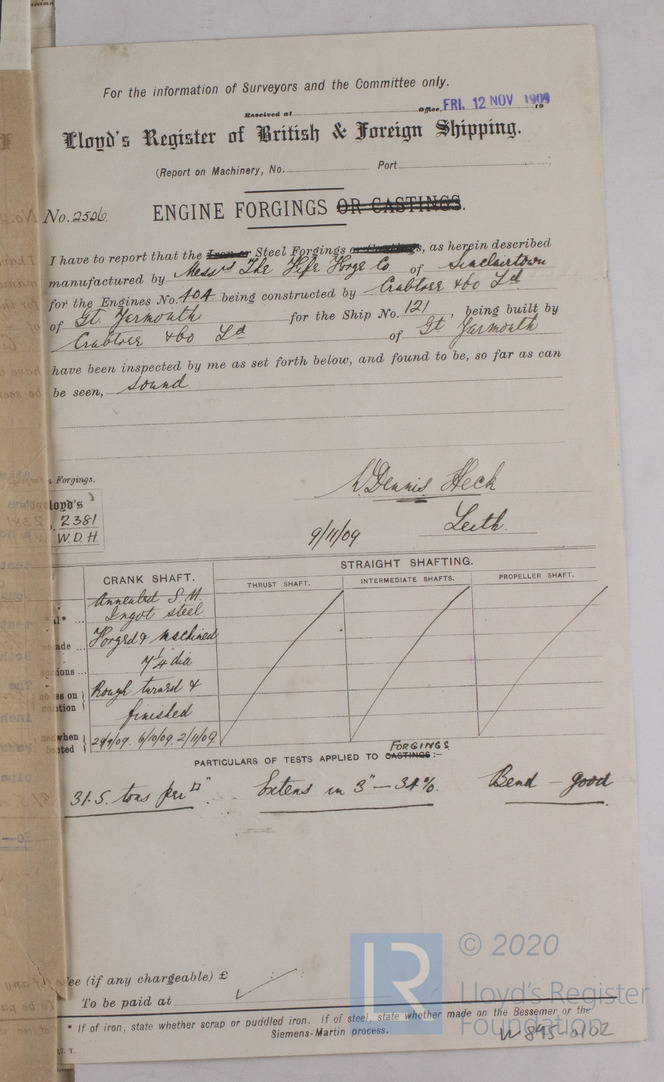 For the information of Surveyors and the Committee only.
Received at Office, FRI. 12 NOV 1909 19
Lloyd's Register of British & Foreign Shipping.
(Report on Machinery, No. Port
No. 2506 ENGINE FORGINGS OR CASTINGS.
I have to report that the Iron or Steel Forgings or Castings, as herein described
manufactured by Messrs The Fife Forge Co of Sinclairtown
for the Engines No. 404 being constructed by Crabtree & Co Ld
of Gt. Yarmouth for the Ship No. 121, being built by
Crabtree & Co Ld of Gt Yarmouth
have been inspected by me as set forth below, and found to be, so far as can
be seen, sound
Forgings.
loyd's
2381
W.D.H.
W. Dennis Heck
9/11/09 Leith.
CRANK SHAFT. STRAIGHT SHAFTING.
THRUST SHAFT. INTERMEDIATE SHAFTS. PROPELLER SHAFT.
Annealed S.M.
Ingot steel
Forged & machined
7¼ dia
Rough turned &
finished
when 6/10/09. 2/11/09
PARTICULARS OF TESTS APPLIED TO CASTINGS FORGINGS:—
31.5. tons per □". Extens in 3" — 34%. Bend — good
Fee (if any chargeable) £
To be paid at
* If of iron, state whether scrap or puddled iron. If of steel, state whether made on the Bessemer or the
Siemens-Martin process.
W895-0102
LR
© 2020
Lloyd's Register
Foundation